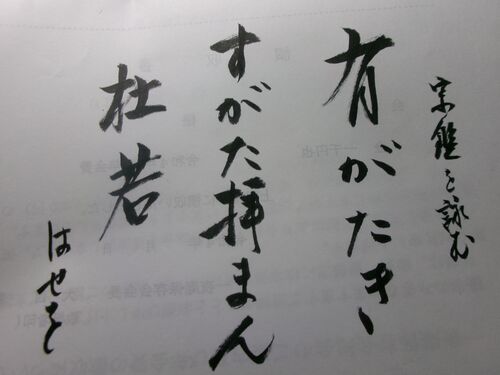 宗鑑を詠む
有がたき
すがた拝まん
杜若
はせを